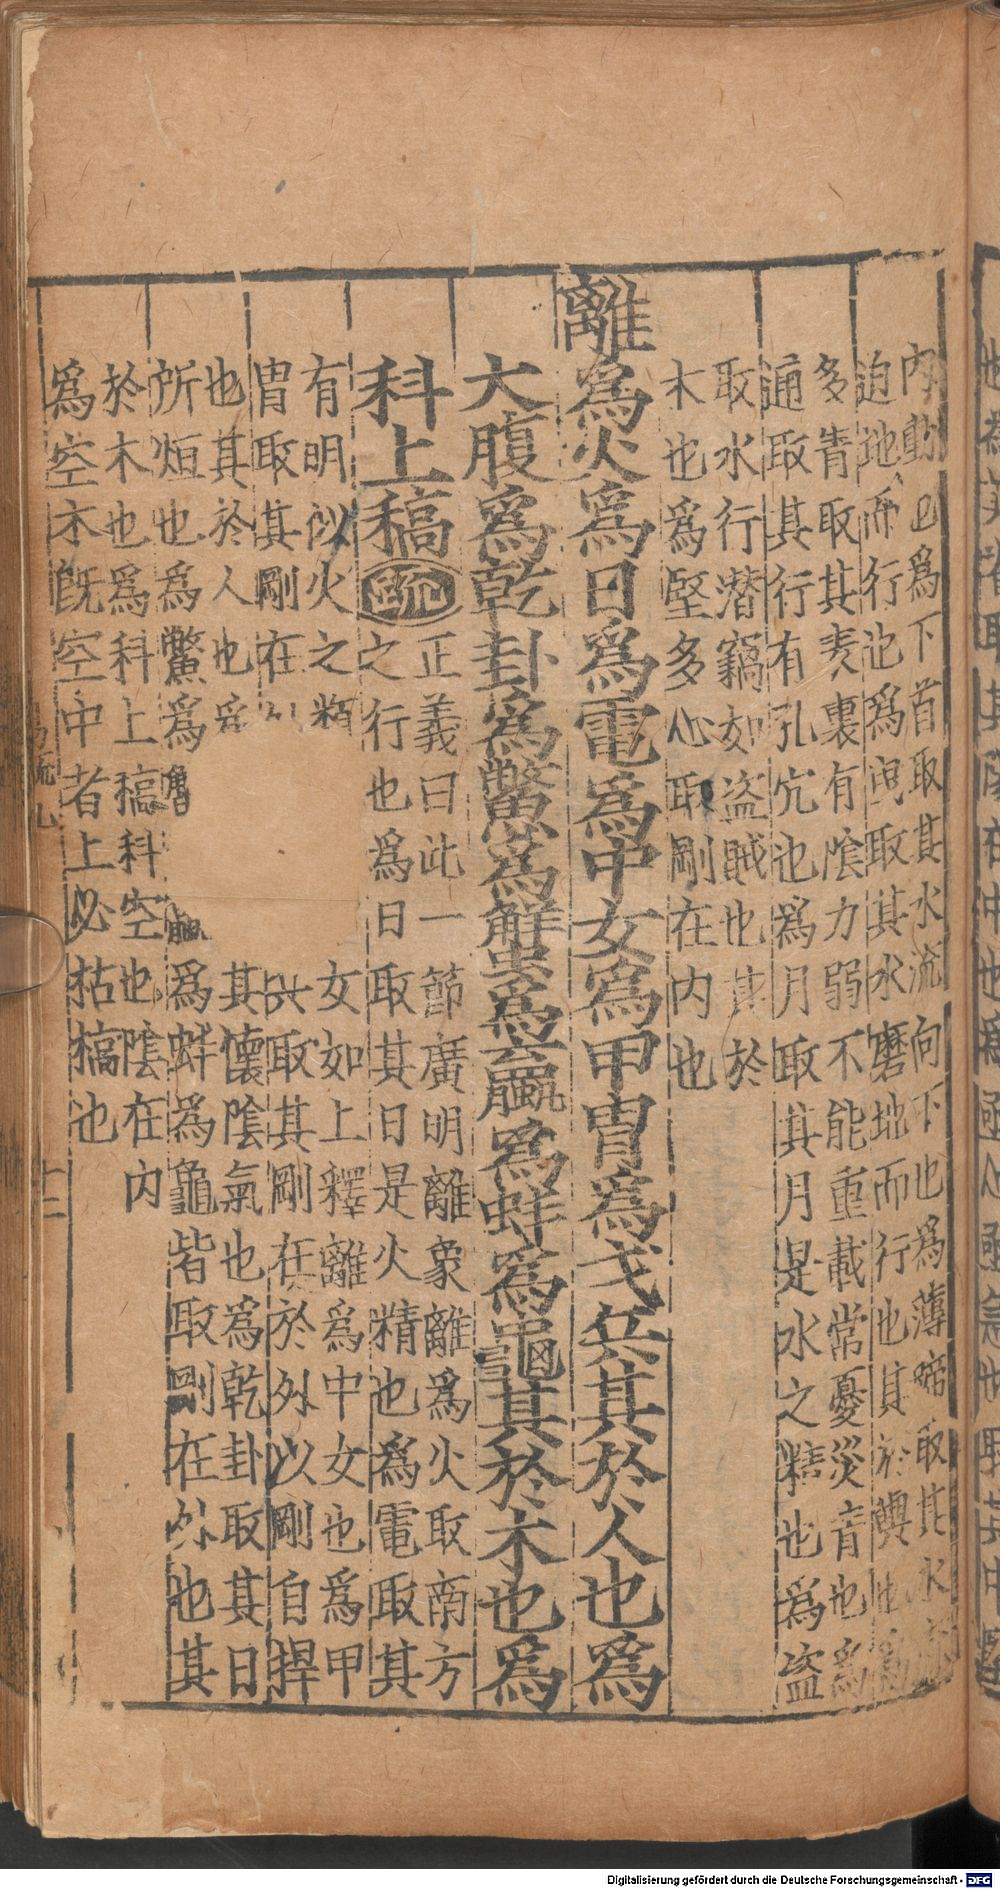 內動也爲下首取其水流向下也爲薄蹄取其水流
迫地而行也爲曳取其水磨地而行也其於輿也爲
多眚取其表裏有陰力弱不能重載常憂災眚也爲
通取其行有孔亢也爲月取其月是水之精也爲盗
取水行潜竊如盗賊也其於
木也爲堅多心取剛在内也
離爲火爲日爲電爲中女爲甲胄爲戈兵其於人也爲
大腹爲乾卦爲鱉爲蟹爲蠃爲蚌爲龜其於木也爲
科上稿疏
正義曰此一節廣明離象離爲火取南方
之行也爲日取其日是火精也爲電取其
有明似火之類
女如上釋離爲中女也爲甲
胄取其剛在
兵取其剛在於外以剛自捍
也其於人也爲
其懷陰氣也爲乾卦取其日
所烜也爲鱉爲
爲蚌爲龜皆取剛在外也其
於木也爲科上稿科空也陰在内
爲空木旣空中者上必枯槁也
十二
Digitalisierung gefördert durch die Deutsche Forschungsgemeinschaft - DFG